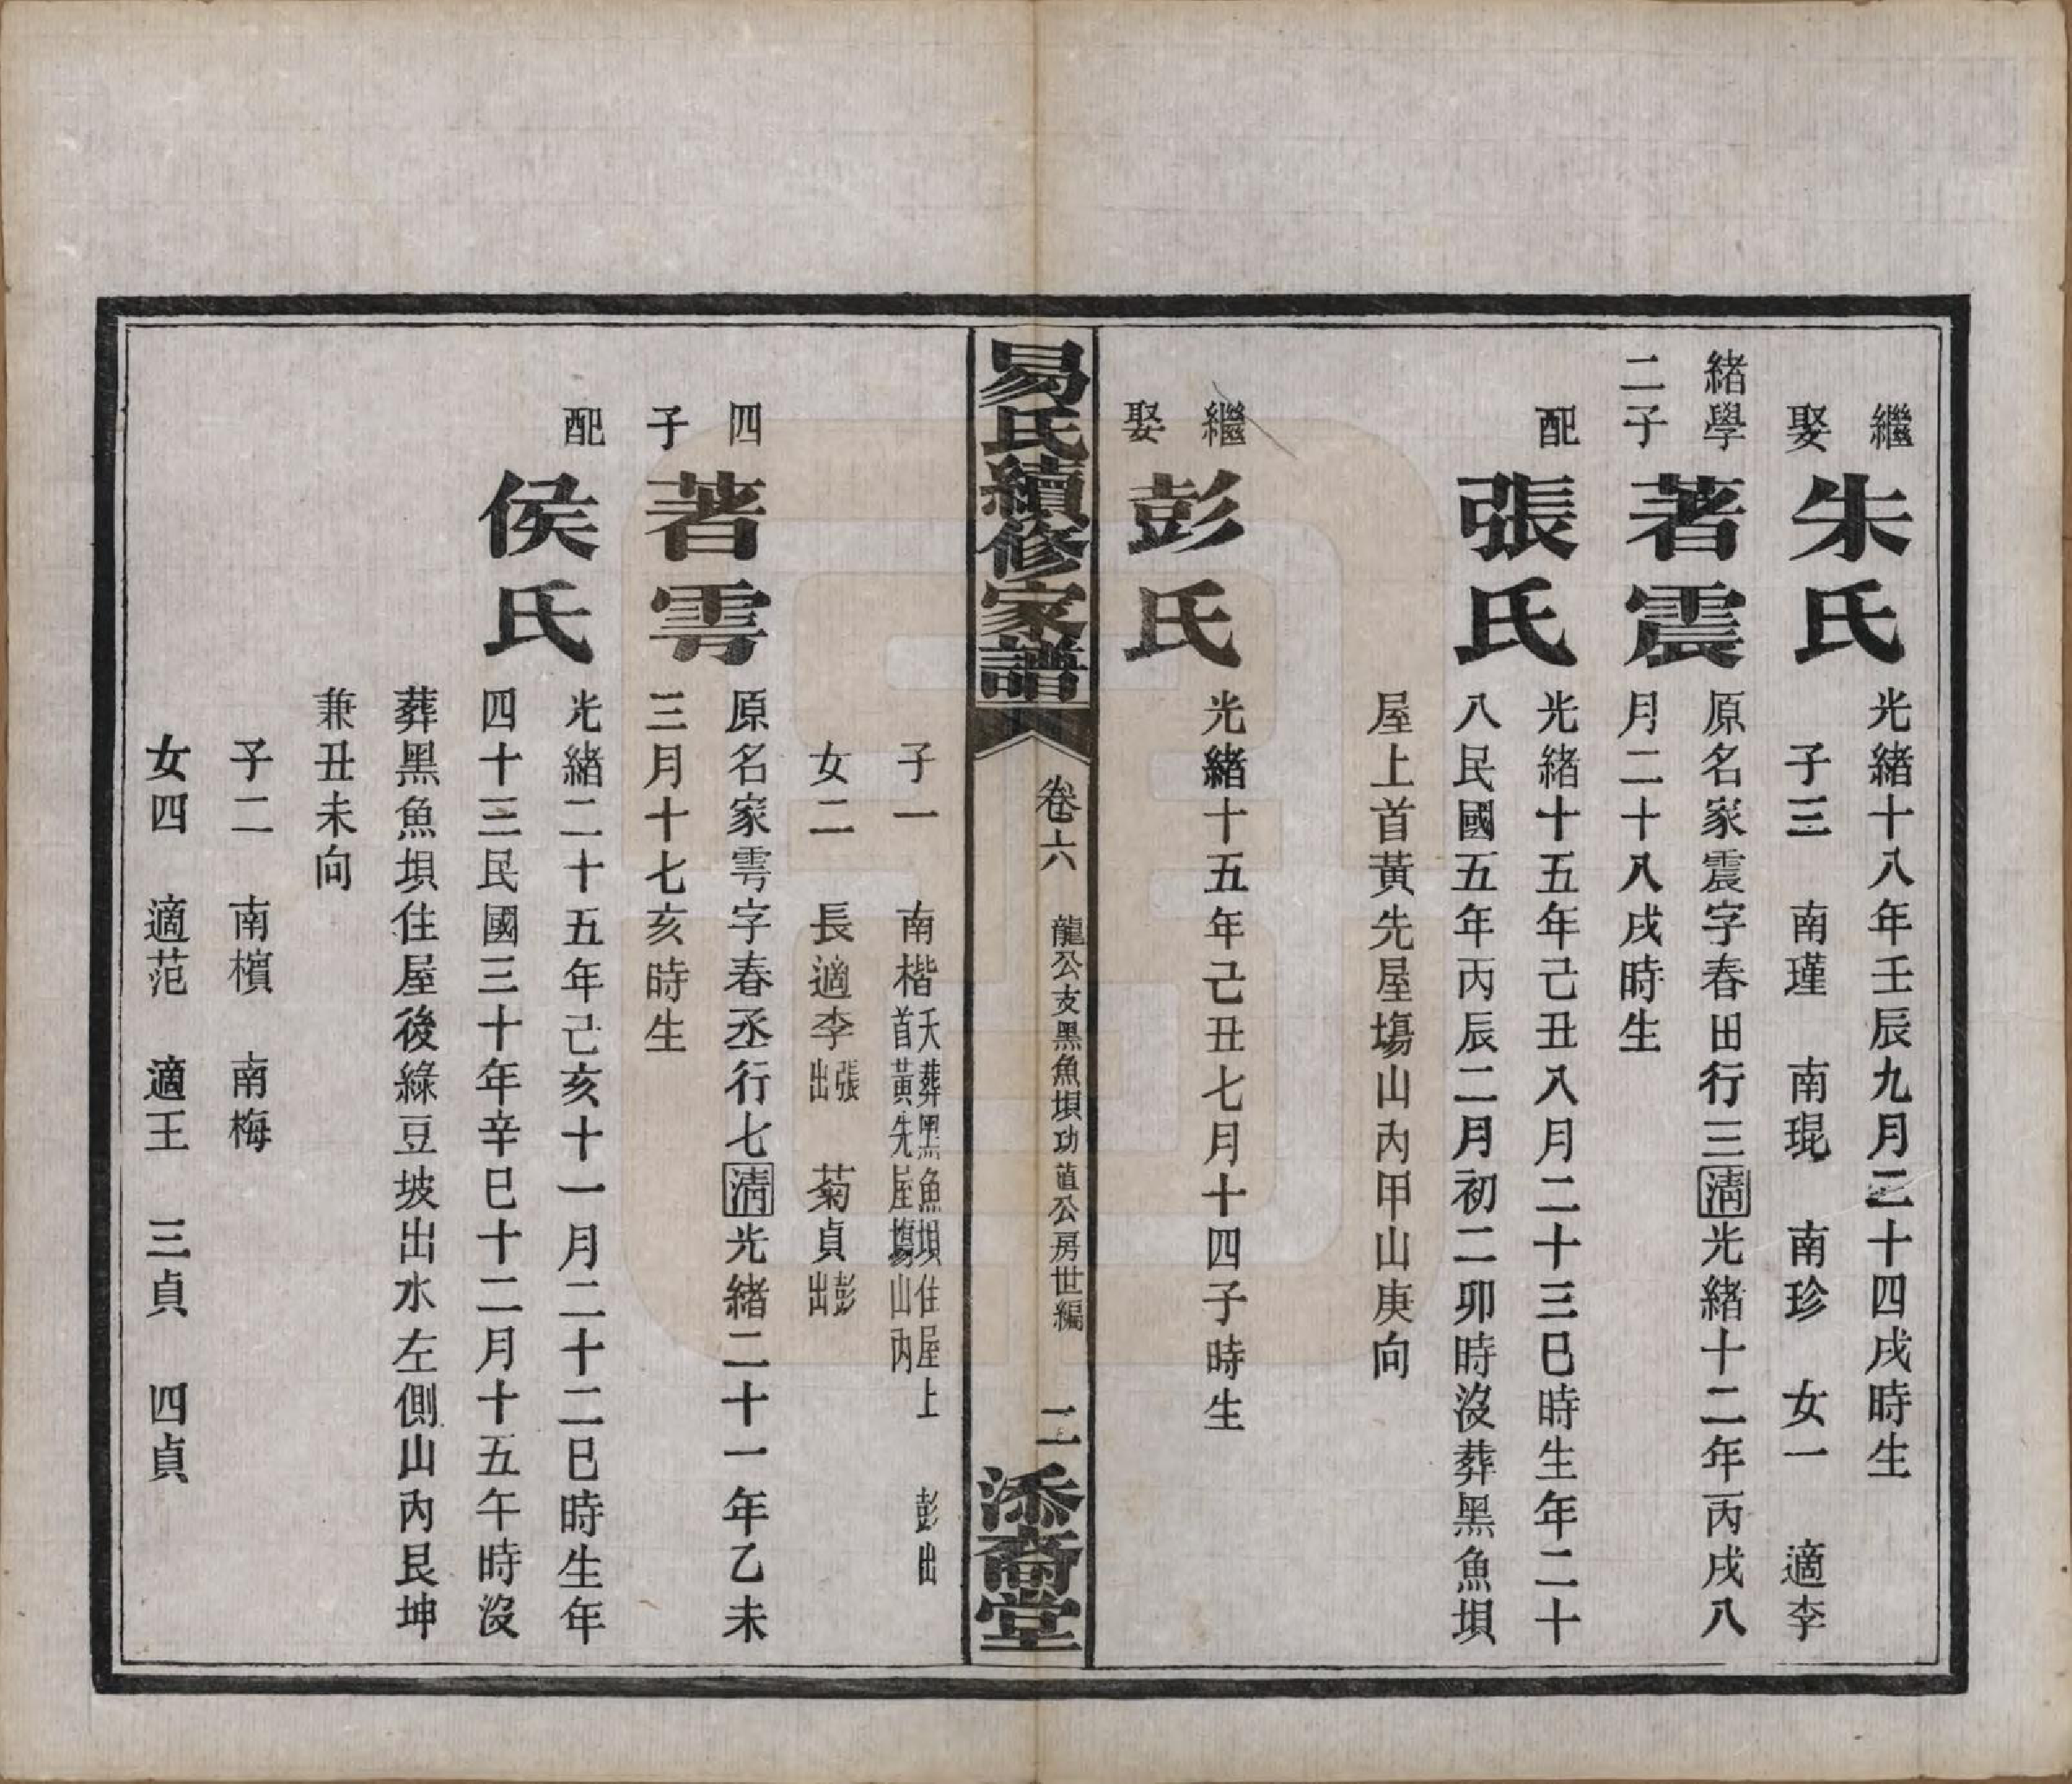 繼娶
朱氏
光緒十八年壬辰九月二十四戌時生
子三 南瑾 南琨 南珍 女一 適李
緒學二子
著震
原名家震字春田行三清光緒十二年丙戌八
月二十八戌時生
配
張氏
光緒十五年己丑八月二十三巳時生年二十
八民國五年丙辰二月初二卯時沒葬黑魚垻
屋上首黃先屋塲山內甲山庚向
繼娶
彭氏
光緒十五年己丑七月十四子時生
易氏續修家譜
卷六
龍公支黑魚垻功 公房世編
二
添裔堂
子一 南楷 夭葬黑魚垻住屋上
首黃先屋塲山內 彭出
女二 長適李 張出 菊貞 彭出
四子
著雩
原名家雩字春丞行七清光緒二十一年乙未
三月十七亥時生
配
侯氏
光緒二十五年己亥十一月二十二巳時生年
四十三民國三十年辛巳十二月十五午時沒
葬黑魚垻住屋後綠豆坡出水左側山內艮坤
兼丑未向
子二 南檳 南梅
女四 適范 適王 三貞 四貞